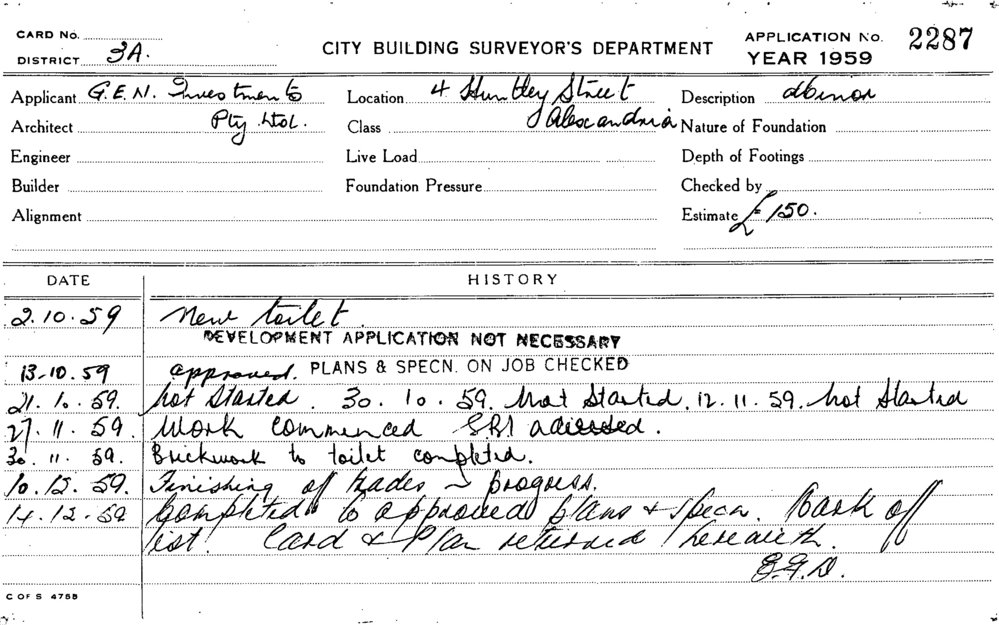 CARD No.
DISTRICT 3A.
CITY BUILDING SURVEYOR'S DEPARTMENT
APPLICATION No. 2287
YEAR 1959
Applicant G.E.N. Investments Location 4 Huntley Street Description
Architect Pty. Ltd. Class Alexandria Nature of Foundation
Engineer Live Load Depth of Footings
Builder Foundation Pressure Checked by
Alignment Estimate £150.
DATE HISTORY
2.10.59 New toilet
DEVELOPMENT APPLICATION NOT NECESSARY
13-10.59 approved. PLANS & SPECN. ON JOB CHECKED
21.10.59. Not Started. 30.10.59. Not Started. 12.11.59. Not Started
27.11.59. Work commenced advised.
30.11.59. Brickwork to toilet completed.
10.12.59. Finishing of trades in progress.
14.12.59 Completed to approved plans & specn. off
list. Card & Plan returned herewith.
C OF S 4755